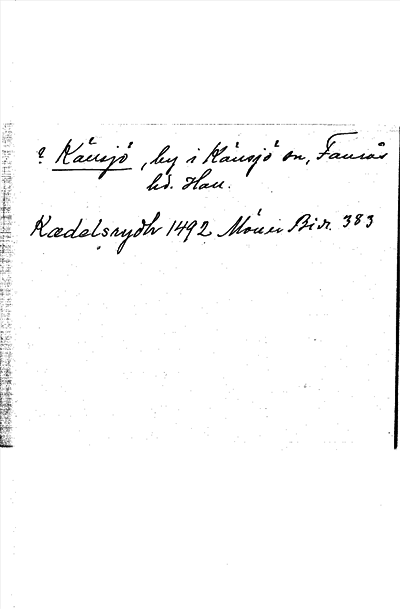 ? Källsjö, by i Källsjö sn, Faurås
hd. Hall.
Kædelsrydhr 1492 Möller Bidr. 383